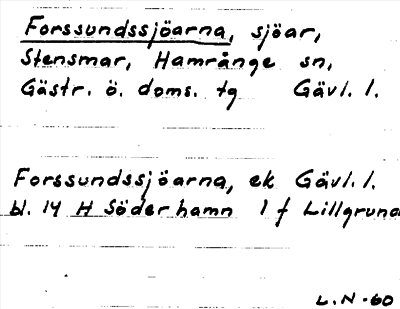 Forssundssjöarna, sjöar,
Stensmar, Hamrånge sn,
Gästr. ö. doms. tg Gävl. l.
Forssundssjöarna, ek Gävl. l.
bl. 14 H Söderhamn 1 f Lillgrund
L.N.-60